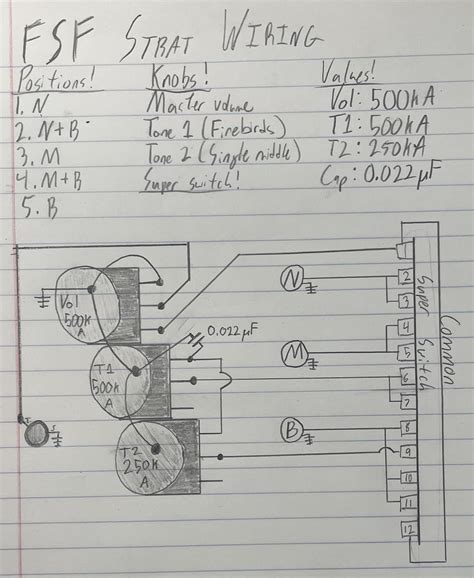 FSF STRAT WIRING
Positions! Knobs! Values!
1. N Master volume Vol: 500kA
2. N+B Tone 1 (Firebirds) T1: 500kA
3. M Tone 2 (Single middle) T2: 250kA
4. M+B Super switch! Cap: 0.022µF
5. B
Vol
500k
A
0.022µF
T1
500k
A
T2
250k
A
N
M
B
2
3
4
5
6
7
8
9
10
11
12
Super Switch
Common